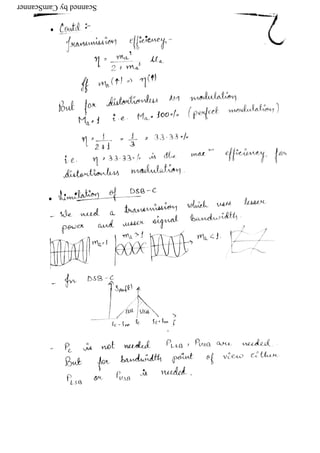 Scanned by CamScanner
• Contd :-
Transmission efficiency -
η = ma² / 2 + ma²
If ma (↑) ⇒ η (↑)
But for distortionless AM modulation
Ma = 1 i.e. Ma = 100% (perfect modulation)
η = 1 / 2+1 = 1/3 = 33.33%
i.e. η = 33.33% is the max efficiency for
distortionless modulation.
• Limitation of DSB-C
- We need a transmission which uses lesser
power and lesser signal bandwidth.
ma=1 ma > 1 ma < 1
- In DSB-C
Sam(f)
LSB USB
fc-fm fc fc+fm f
- Pc is not needed PLSB, PUSB are needed.
But for bandwidth point of view either
PLSB or PUSB is needed.